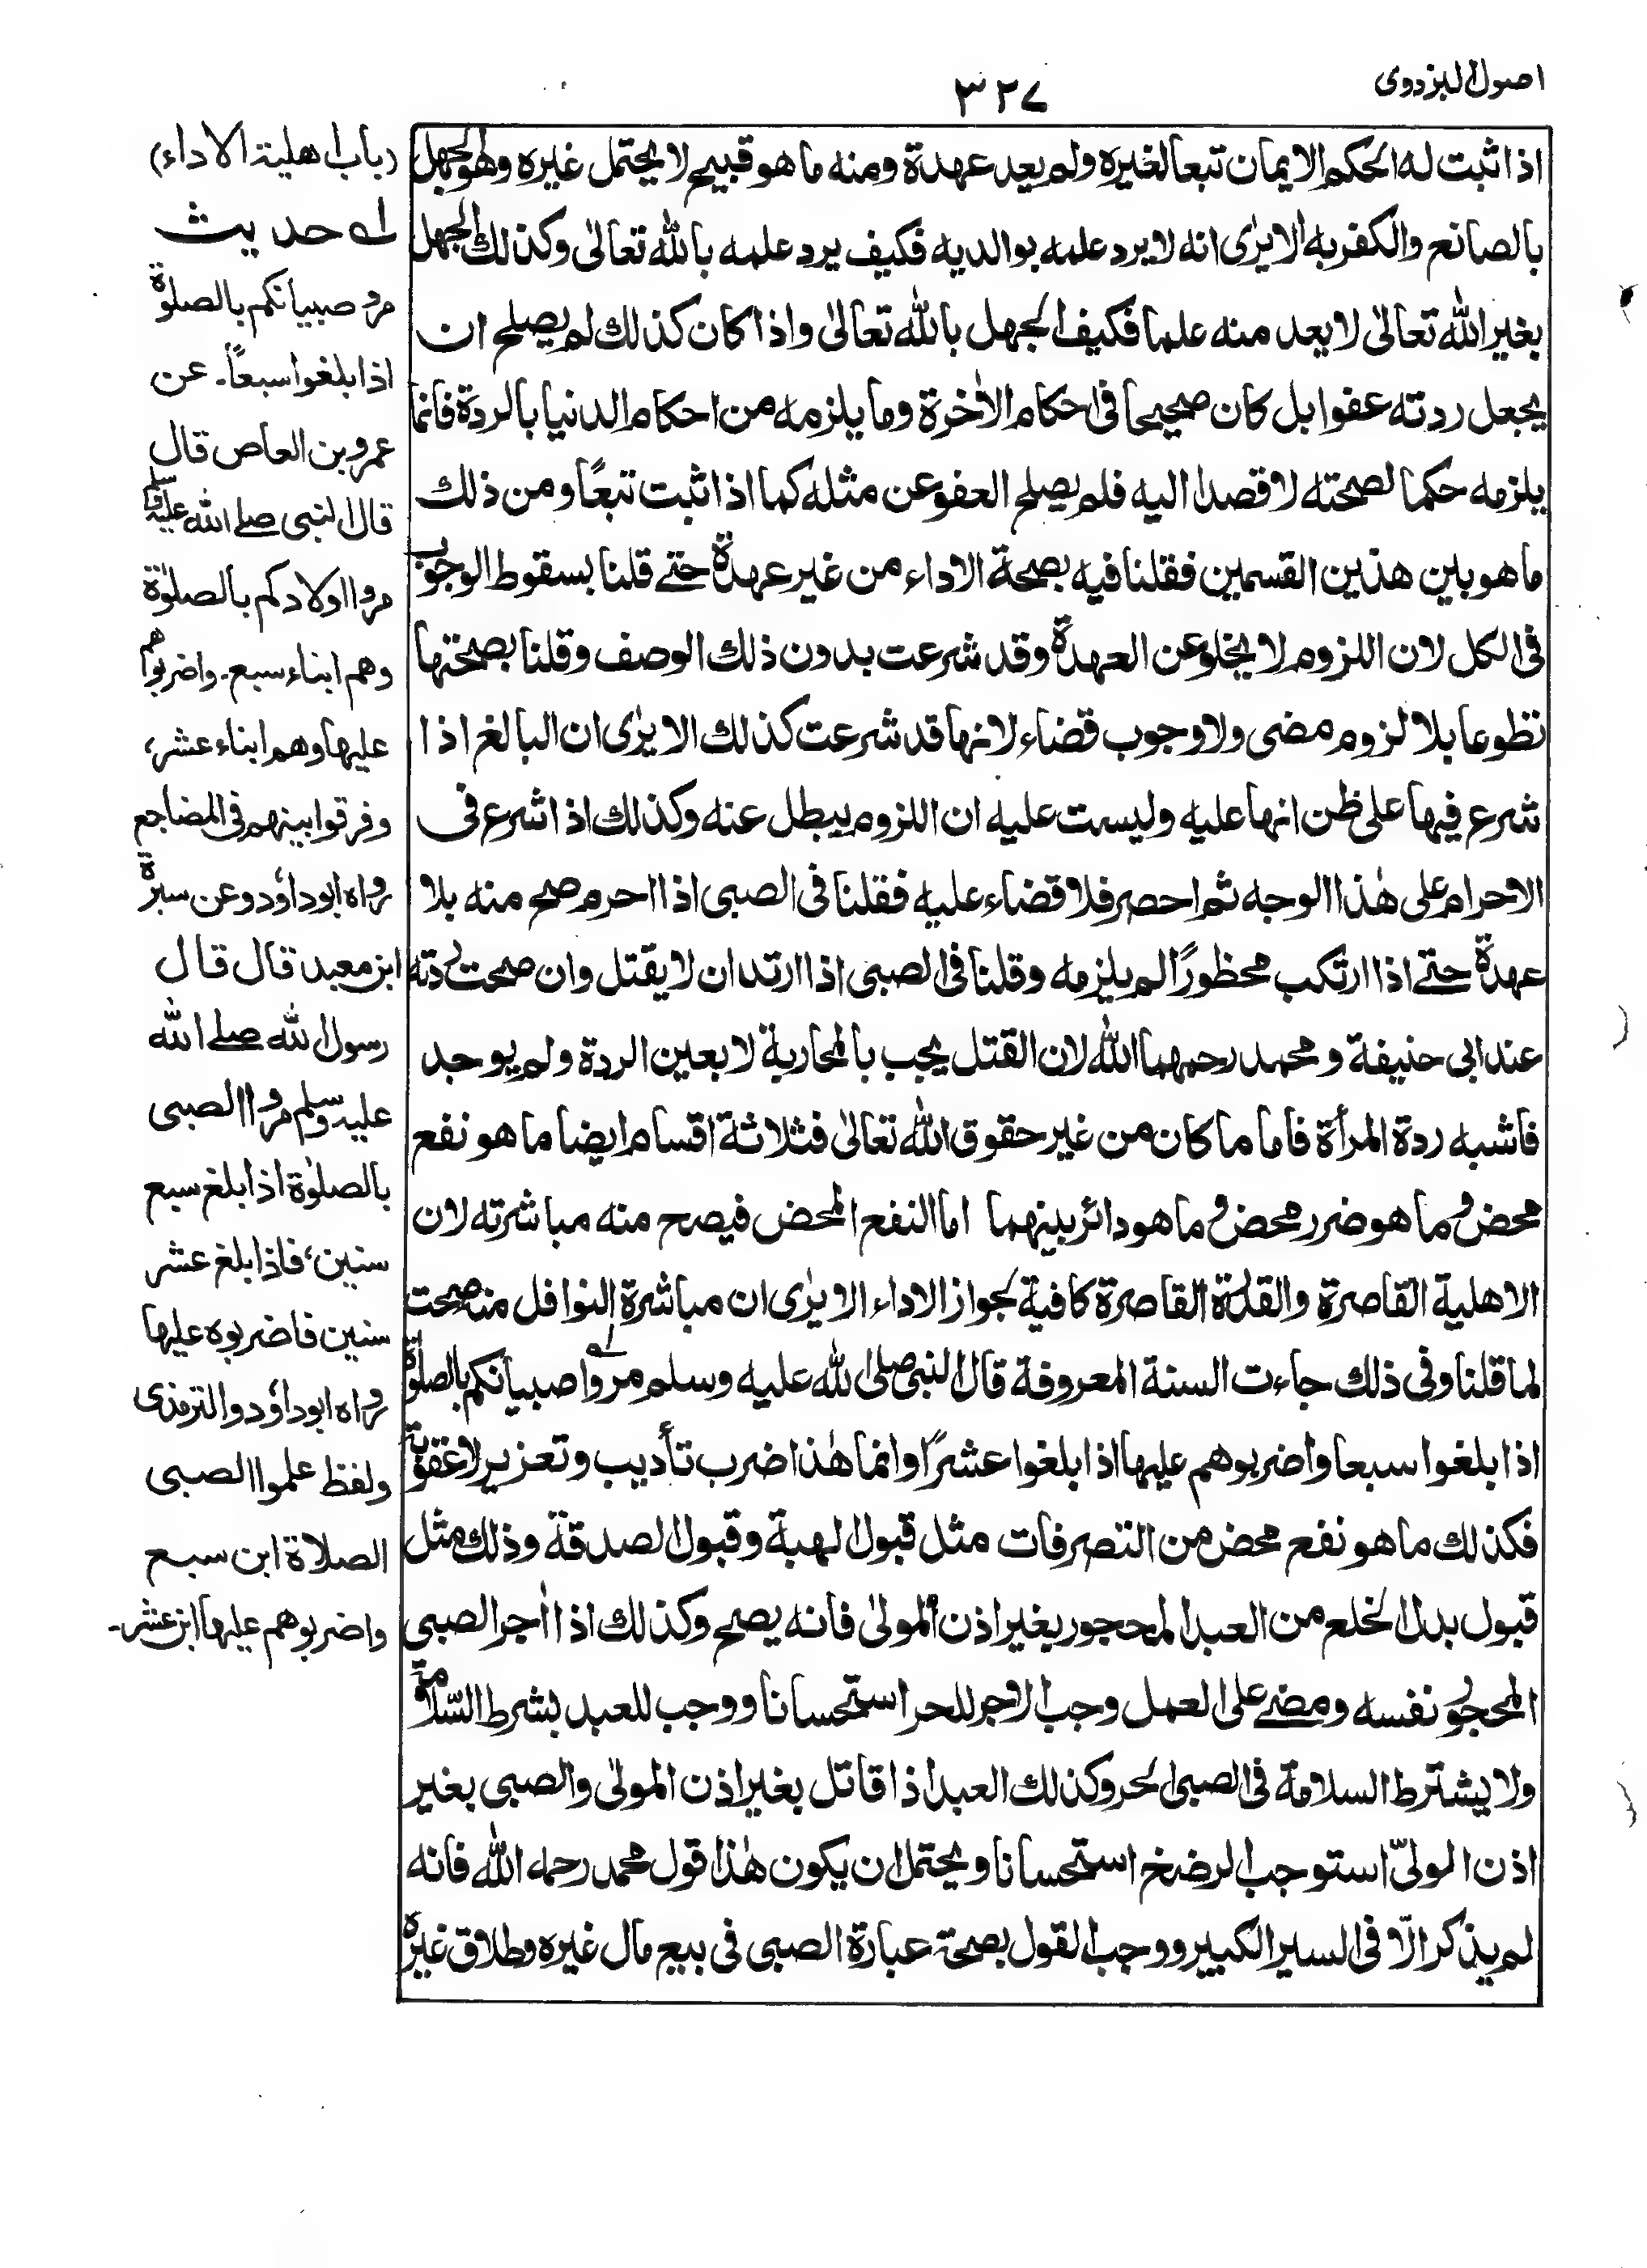 اصول البزدوى
٣٢٧
اذا ثبت له الحكم الايمان تبعا لغيره ولم يعد عهدة ومنه ما هو قبيح لا يحتمل غيره وهو الجهل
بالصانع والكفر به الا يرٰى انه لا يرد علمه بوالديه فكيف يرد علمه بالله تعالىٰ وكذلك الجهل
بغير الله تعالىٰ لا يعد منه علما فكيف الجهل بالله تعالىٰ واذا كان كذلك لم يصلح ان
يجعل ردته عفوا بل كان صحيحا فى احكام الاٰخرة وما يلزمه من احكام الدنيا بالردة فانما
يلزمه حكما لصحته لا قصدا اليه فلم يصلح العفو عن مثله كما اذا ثبت تبعًا ومن ذلك
ما هو بين هذين القسمين فقلنا فيه بصحة الاداء من غير عهدة حتے قلنا بسقوط الوجوب
فى الكل لان اللزوم لا يخلو عن العهدة وقد شرعت بدون ذلك الوصف وقلنا بصحتها
تطوعا بلا لزوم مضى ولا وجوب قضاء لانها قد شرعت كذلك الا يرٰى ان البالغ اذا
شرع فيها على ظن انها عليه وليست عليه ان اللزوم يبطل عنه وكذلك اذا شرع فى
الاحرام على هٰذا الوجه ثم احصر فلا قضاء عليه فقلنا فى الصبى اذا احرم صح منه بلا
عهدة حتے اذا ارتكب محظورًا لم يلزمه وقلنا فى الصبى اذا ارتد ان لا يقتل وان صحت ردته
عند ابى حنيفة و محمد رحمهما الله لان القتل يجب بالمحاربة لا بعين الردة ولم يوجد
فاشبه ردة المرأة فاما ما كان من غير حقوق الله تعالىٰ فثلاثة اقسام ايضا ما هو نفع
محض و ما هو ضرر محض و ما هو دائر بينهما اما النفع المحض فيصح منه مباشرته لان
الاهلية القاصرة والقدرة القاصرة كافية لجواز الاداء الا يرٰى ان مباشرة النوافل منه صحت
لما قلنا وفى ذلك جاءت السنة المعروفة قال النبى صلى الله عليه وسلم مروا صبيانكم بالصلوٰة
اذا بلغوا سبعا واضربوهم عليها اذا بلغوا عشرًا وانما هٰذا ضرب تأديب وتعزير لا عقوبة
فكذلك ما هو نفع محض من التصرفات مثل قبول الهبة وقبول الصدقة وذلك مثل
قبول بدل الخلع من العبد المحجور بغير اذن المولىٰ فانه يصح وكذلك اذا اٰجر الصبى
المحجور نفسه ومضے على العمل وجب الاجر للحر استحسانا ووجب للعبد بشرط السّلامة
ولا يشترط السلامة فى الصبى الحر وكذلك العبد اذا قاتل بغير اذن المولىٰ والصبى بغير
اذن الولىّ استوجب الرضخ استحسانا ويحتمل ان يكون هٰذا قول محمد رحمه الله فانه
لم يذكر الّا فى السير الكبير ووجب القول بصحة عبارة الصبى فى بيع مال غيره وطلاق غيره
(باب اهلية الاداء)
لہ حديث
مروا صبيانكم بالصلوٰة
اذا بلغوا سبعاً۔ عن
عمرو بن العاص قال
قال النبى صلے الله عليه وسلم
مروا اولادكم بالصلوٰة
وهم ابناء سبع۔ واضربوهم
عليها وهم ابناء عشر،
وفرقوا بينهم فى المضاجع
رواه ابو داوٗد وعن سبرة
ابن معبد قال قال
رسول الله صلے الله
عليه وسلم مروا الصبى
بالصلوٰة اذا بلغ سبع
سنين، فاذا بلغ عشر
سنين فاضربوه عليها
رواه ابو داوٗد والترمذى
ولفظ علموا الصبى
الصلاة ابن سبع
واضربوهم عليها ابن عشر۔